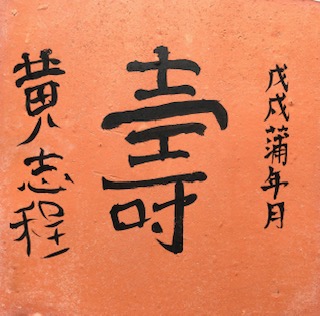 戊戌蒲年月
壽
黄志程